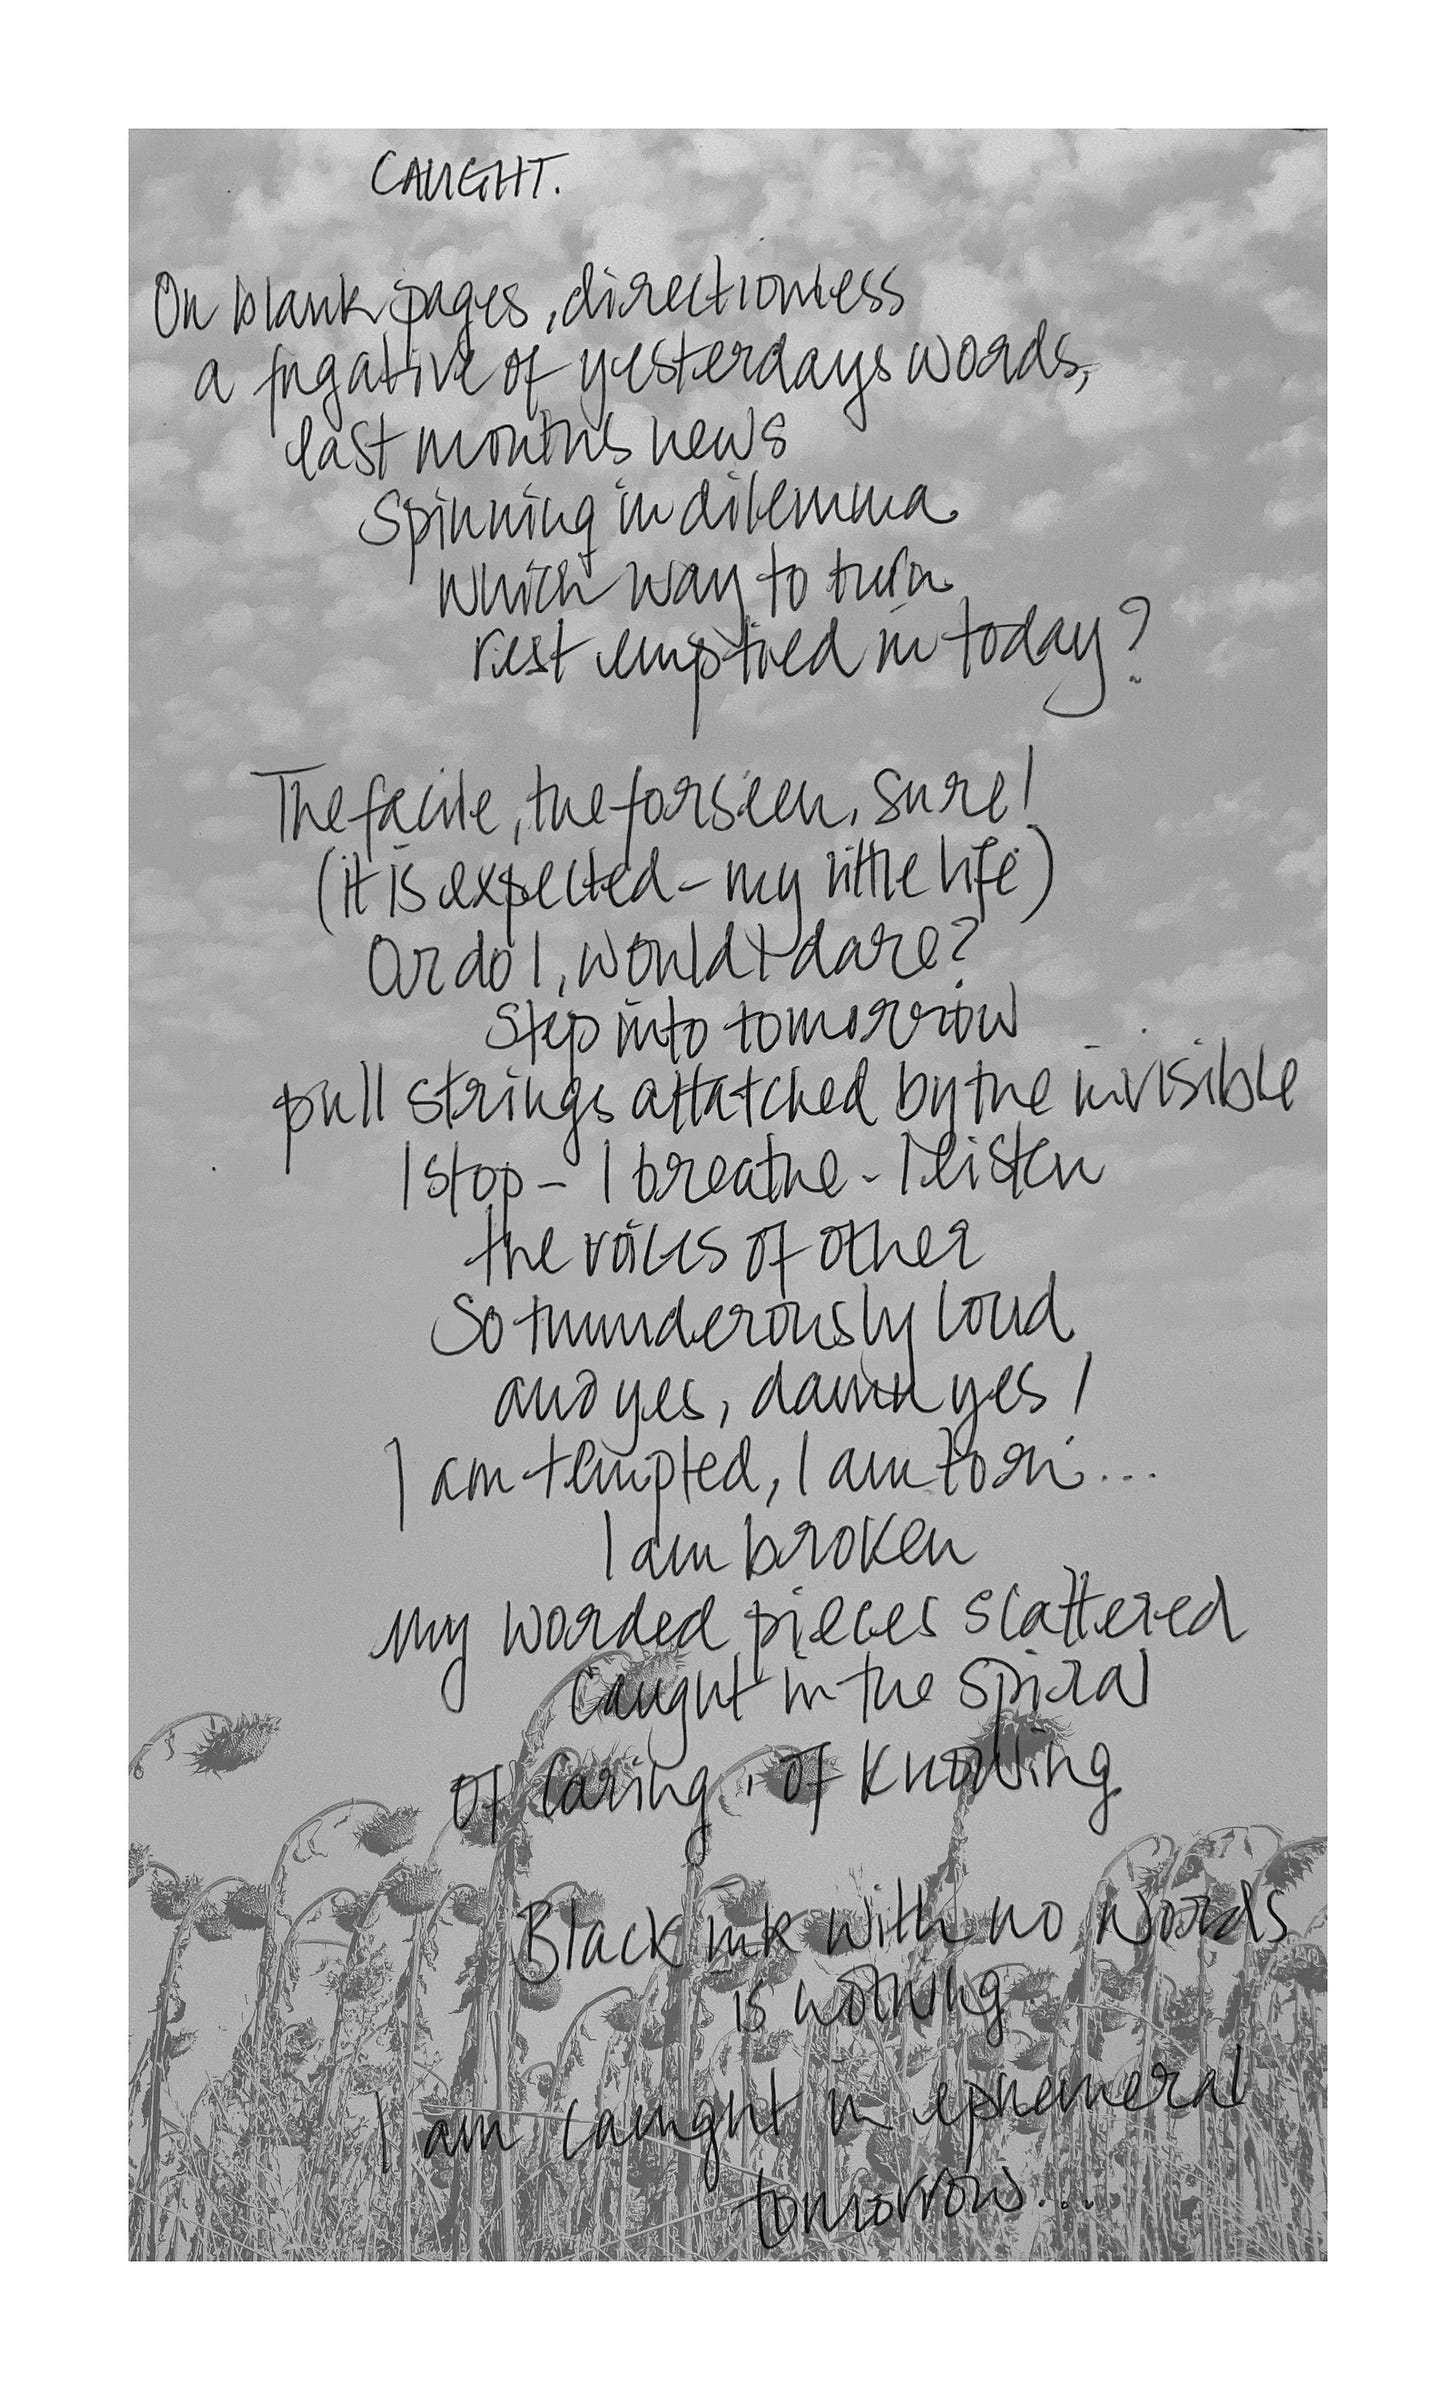 CAUGHT.
On blank pages, directionless
a fugative of yesterdays words,
last months news
Spinning in dilemma
which way to turn
rest emptied in today?
The facile, the forseen, sure!
(it is expected - my little life)
Or do I, would I dare?
Step into tomorrow
pull strings attatched by the invisible
I stop - I breathe - I listen
the voices of other
So thunderously loud
and yes, damn yes!
I am tempted, I am torn...
I am broken
my worded pieces scattered
caught in the spiral
of caring, of knowing
Black ink with no words
is nothing
I am caught in ephemeral
tomorrow...